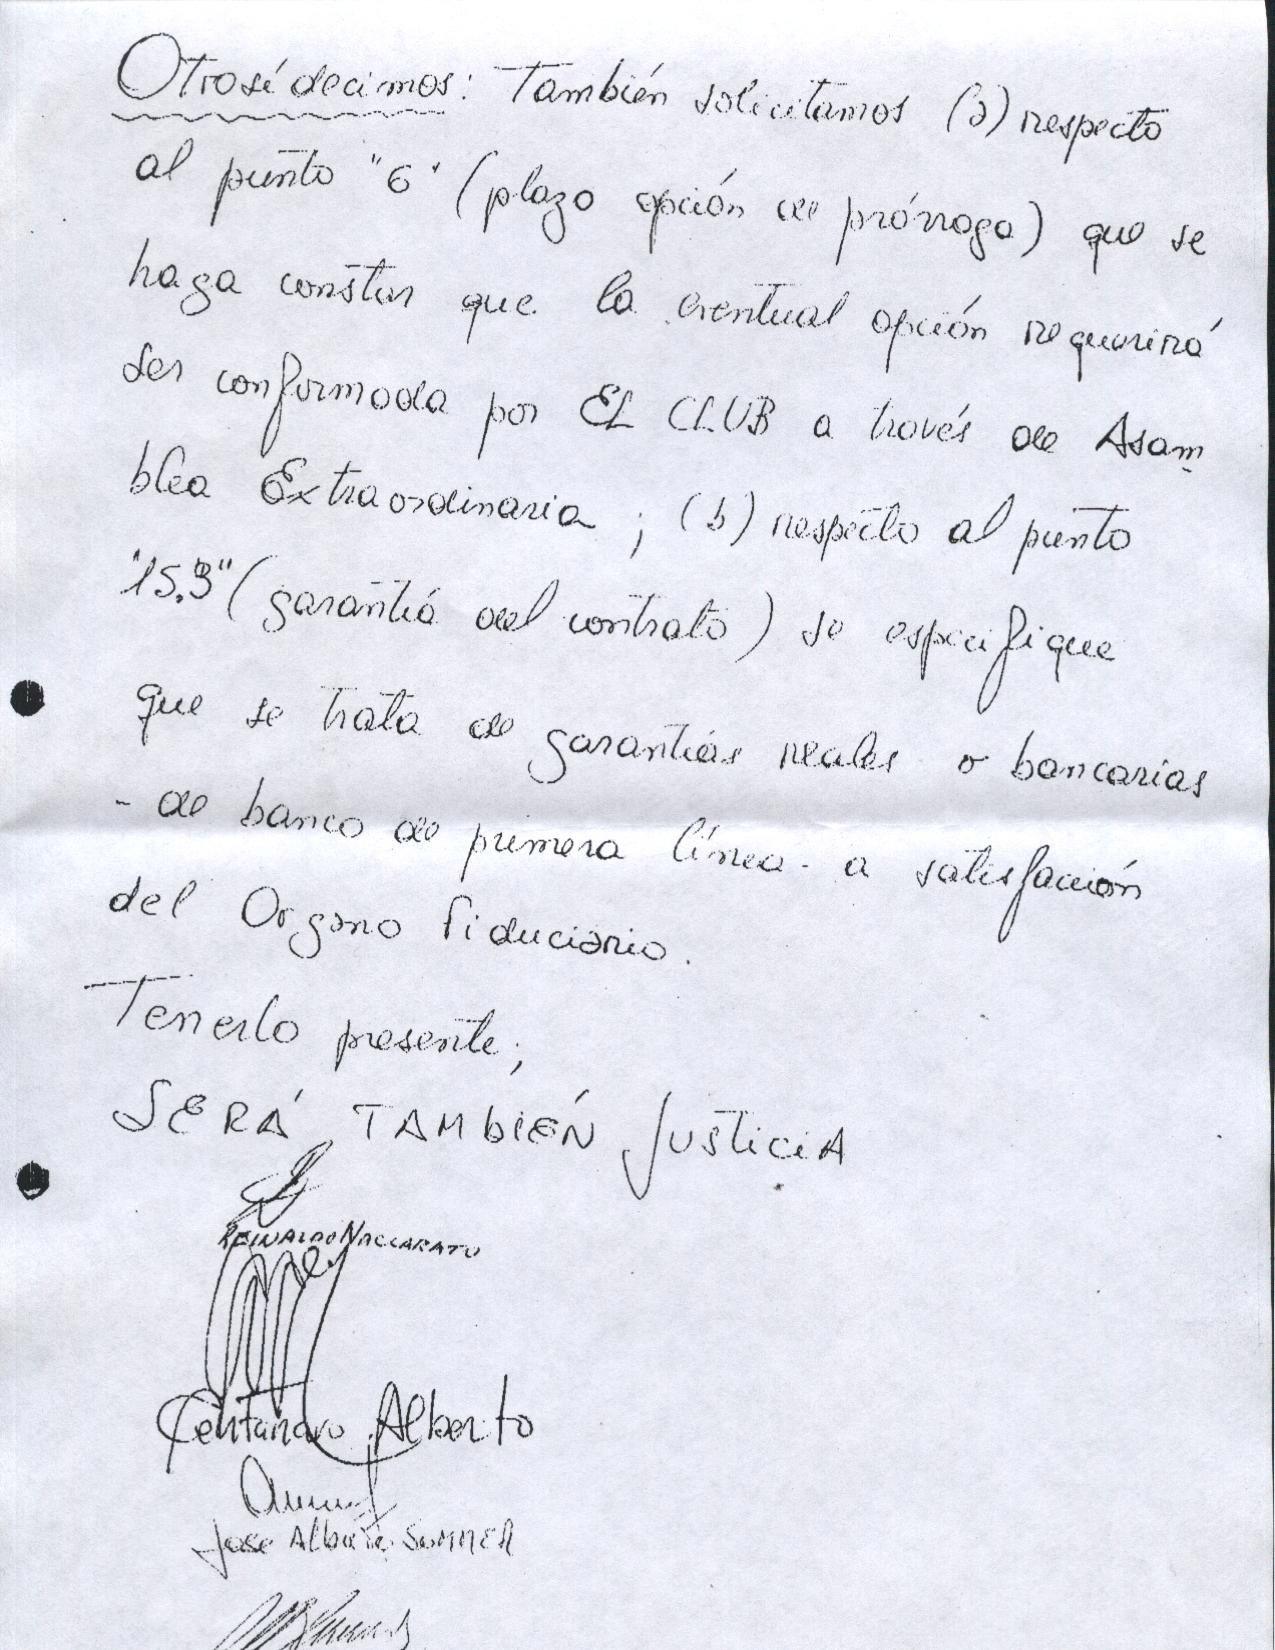 Otrosí decimos: También solicitamos (a) respecto
al punto "6" (plazo opción de prórroga) que se
haga constar que la eventual opción requerirá
ser conformada por EL CLUB a través de Asam
blea Extraordinaria; (b) respecto al punto
"15.3" (garantía del contrato) se especifique
que se trata de garantías reales o bancarias
- de banco de primera línea - a satisfacción
del Organo Fiduciario.
Tenerlo presente;
SERÁ TAMBIÉN JUSTICIA
REINALDO NACCARATO
Alberto
Jose Alberto